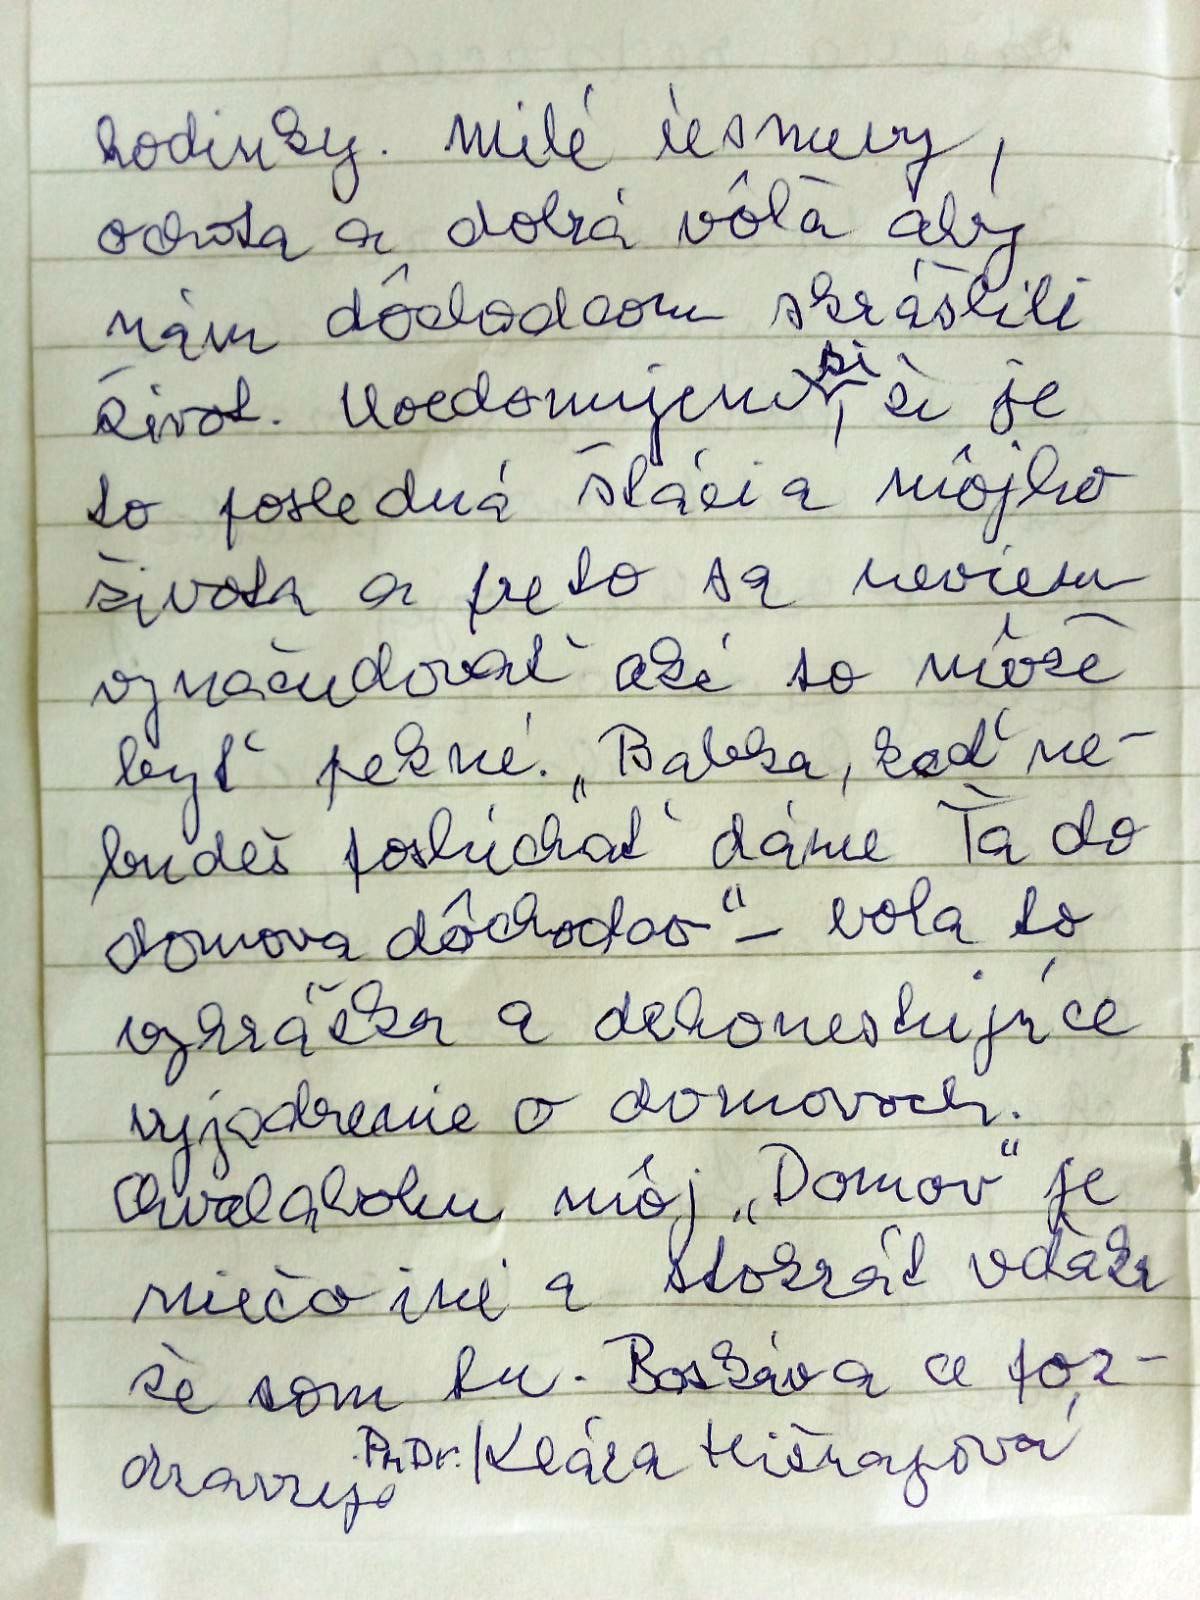 hodinky. Milé úsmevy,
ochota a dobrá vôľa aby
nám dôchodcom skrášlili
život. Uvedomujem si, že je
to posledná štácia môjho
života a preto sa neviem
vynačudovať aké to môže
byť pekné. „Babka, keď ne-
budeš poslúchať dáme Ťa do
domova dôchodcov" – bola to
vyhrážka a dehonestujúce
vyjadrenie o domovoch.
Chvalabohu môj „Domov" je
niečo iné a stokrát vďaka
že som tu. S pozdravom
PhDr. Klára